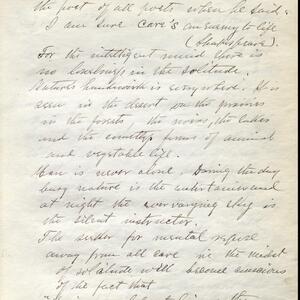 the poet of all poets when he said.
I am sure care's an enemy to life
(Shakespeare).
For the intelligent mind there is
no loneliness in the solitude.
Nature's handiwork is everywhere. It is
seen in the desert on the prairies
in the forests, the rivers, the lakes
and the countless forms of animal
and vegetable life.
Man is never alone. During the day
busy nature is the entertainer and
at night the ever varying sky is
the silent instructor.
The seeker for mental refuge
away from all care in the midst
of solitude will become conscious
of the fact that